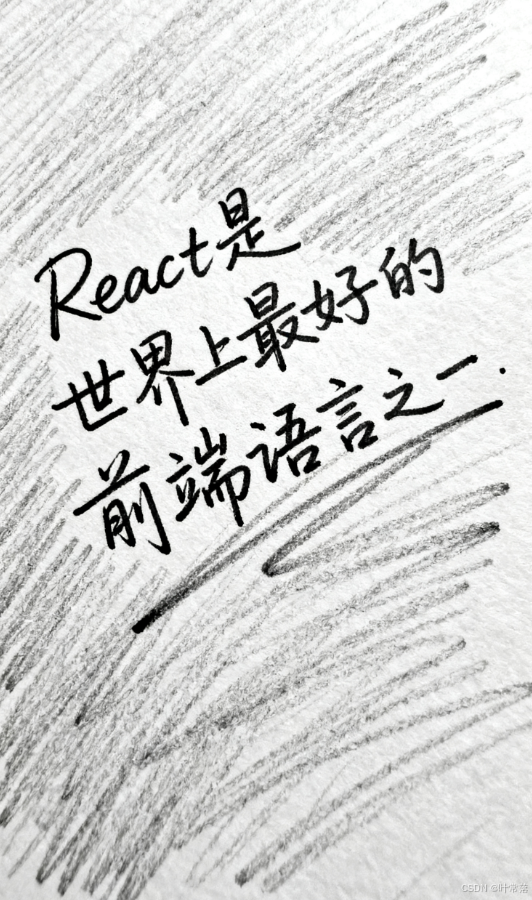 React是
世界上最好的
前端语言之一.
CSDN @叶常落